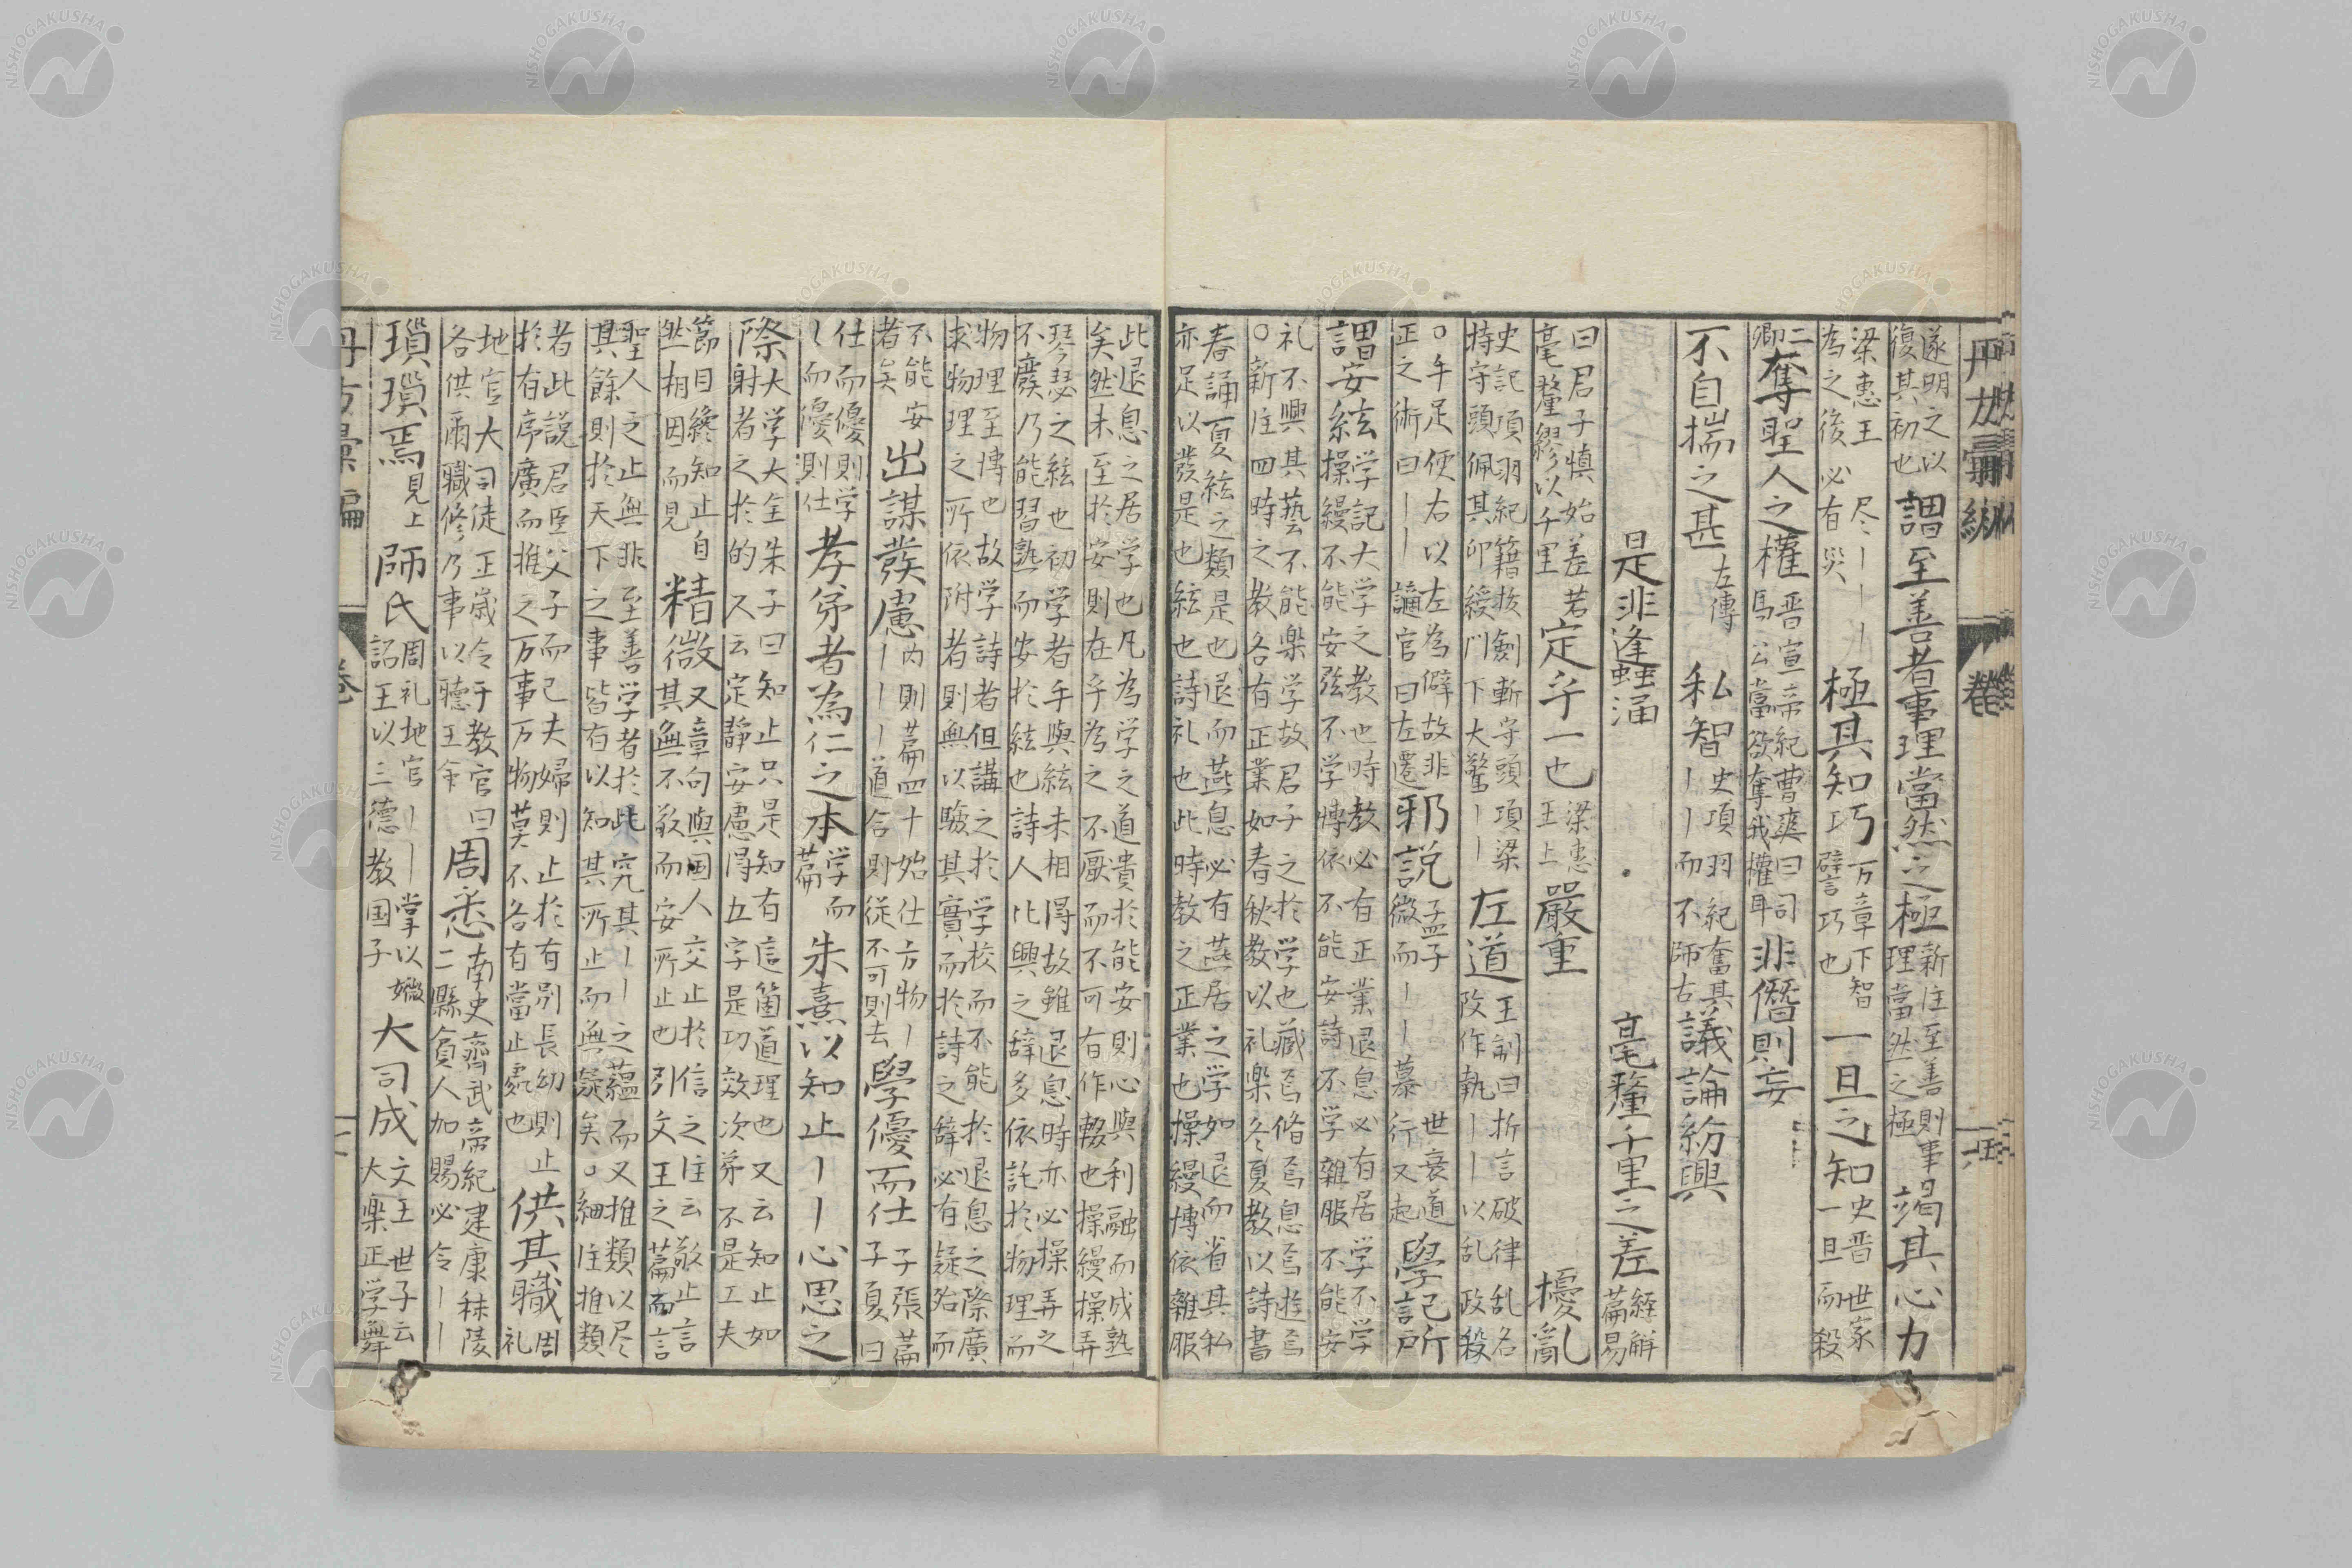 遂明之以
復其初也
謂至善者事理當然之極
新注至善則事
理當然之極
竭其心力
梁惠王　尽丨丨丨
為之後必有災
極其知巧
万章下智
譬巧也
一旦之知
史晋世家
一旦而殺
二
卿
奪聖人之權
晋宣帝紀曹爽曰司
馬公當欲奪我權耳
非僭則妄
不自揣之甚
左傳
私智
史項羽紀奮其
丨丨而不師古
議論紛興
是非逢
毫釐千里之差
経解
篇易
曰君子慎始差若
毫釐繆以千里
定乎一也
梁惠
王上
嚴重
擾亂
史記項羽紀籍拔劍斬守頭項梁
持守頭佩其印綬門下大驚丨丨
左道
王制曰折言破律乱名
改作執丨丨以乱政殺
○手足便右以左為僻故非
正之術曰丨丨謫官曰左遷
邪説
孟子　世衰道
微而丨丨暴行又起
學記所
謂安絃
学記大学之教也時教必有正業退息必有居学不学
操縵不能安弦不学博依不能安詩不学雜服不能安
礼不興其藝不能楽学故君子之於学也藏焉脩焉息焉遊焉
○新注四時之教各有正業如春秋教以礼楽冬夏教以詩書
春誦夏絃之類是也退而燕息必有燕居之学如退而省其私
亦足以發是也絃也詩也礼也此時教之正業也操縵博依雜服
此退息之居学也凡為学之道貴於能安則心與利融而成熟
矣然未至於安則在乎為之不厭而不可有作輟也操縵操弄
琴瑟之絃也初学者手與絃未相得故雖退息時亦必操弄之
不廢乃能習熟而安於絃也詩人比興之辞多依託於物理而
物理至博也故学詩者但講之於学校而不能於退息之際廣
求物理之所依附者則無以驗其實而於詩之辞必有疑殆而
不能安
者矣
出謀發慮
内則篇四十始仕方物丨
丨丨丨道合則従不可則去
學優而仕
子張篇
子夏曰
仕而優則学
丨而優則仕
孝弟者為仁之本
学而
篇
朱熹以知止丨丨心思之
際
大学大全朱子曰知止只是知有這箇道理也又云知止如
射者之於的又云定静安慮得五字是功效次第不是工夫
節目纔知止自
然相因而見
精微
又章句與国人交止於信之注云敬止言
其無不敬而安所止也引文王之篇而言
聖人之止無非至善学者於此究其丨丨之蘊而又推類以尽
其餘則於天下之事皆有以知其所止而無疑矣○細注推類
者此説君臣父子而己夫婦則止於有別長幼則止
於有序廣而推之万事万物莫不各有當止處也
供其職
周
礼
地官大司徒正歳令于教官曰
各供爾職修乃事以聴王命
周悉
南史齊武帝紀建康秣陵
二縣貧人加賜必令丨丨
瑣瑣焉
見上
師氏
周礼地官丨丨掌以媺
詔王以三德教国子
大司成
文王世子云
大楽正学舞